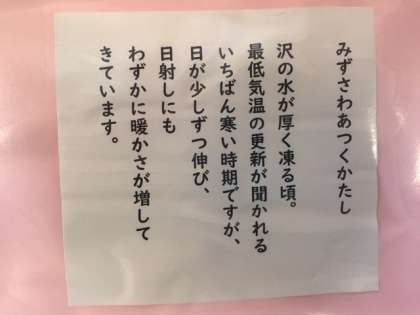 みずさわあつくかたし
沢の水が厚く凍る頃。
最低気温の更新が聞かれる
いちばん寒い時期ですが、
日が少しずつ伸び、
日射しにも
わずかに暖かさが増して
きています。